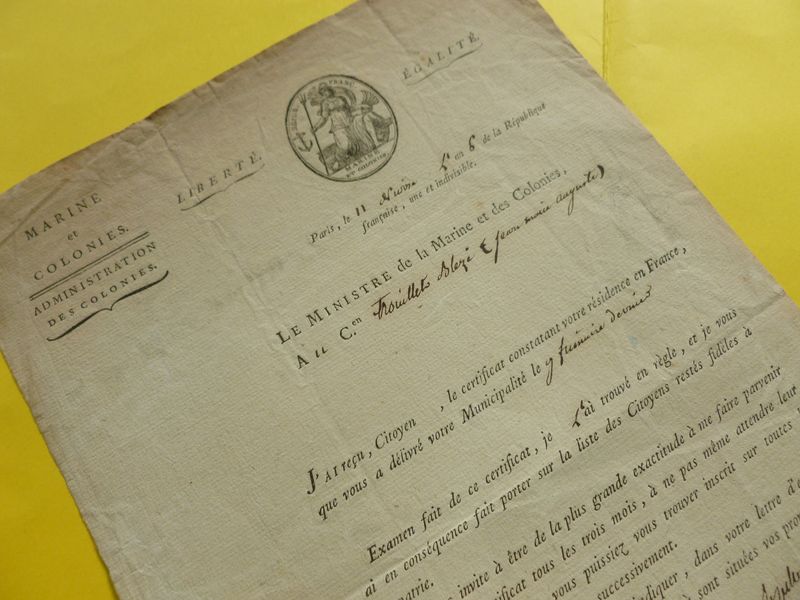 LIBERTÉ.
ÉGALITÉ.
MARINE
ET COLONIES
MARINE
et
COLONIES.
ADMINISTRATION
DES COLONIES.
Paris, le 11 Nivôse L'an 6 de la République
française, une et indivisible.
LE MINISTRE de la Marine et des Colonies,
A u C.en Trouillet Blezé (jean marie auguste)
J'AI reçu, Citoyen , le certificat constatant votre résidence en France,
que vous a délivré votre Municipalité le 9 frimaire dernier
Examen fait de ce certificat, je L'ai trouvé en règle, et je vous
ai en conséquence fait porter sur la liste des Citoyens restés fidèles à
invite à être de la plus grande exactitude à me faire parvenir
tous les trois mois, à ne pas même attendre leur
vous puissiez vous trouver inscrit sur toutes
successivement.
dans votre lettre d'e
sont situées vos pro